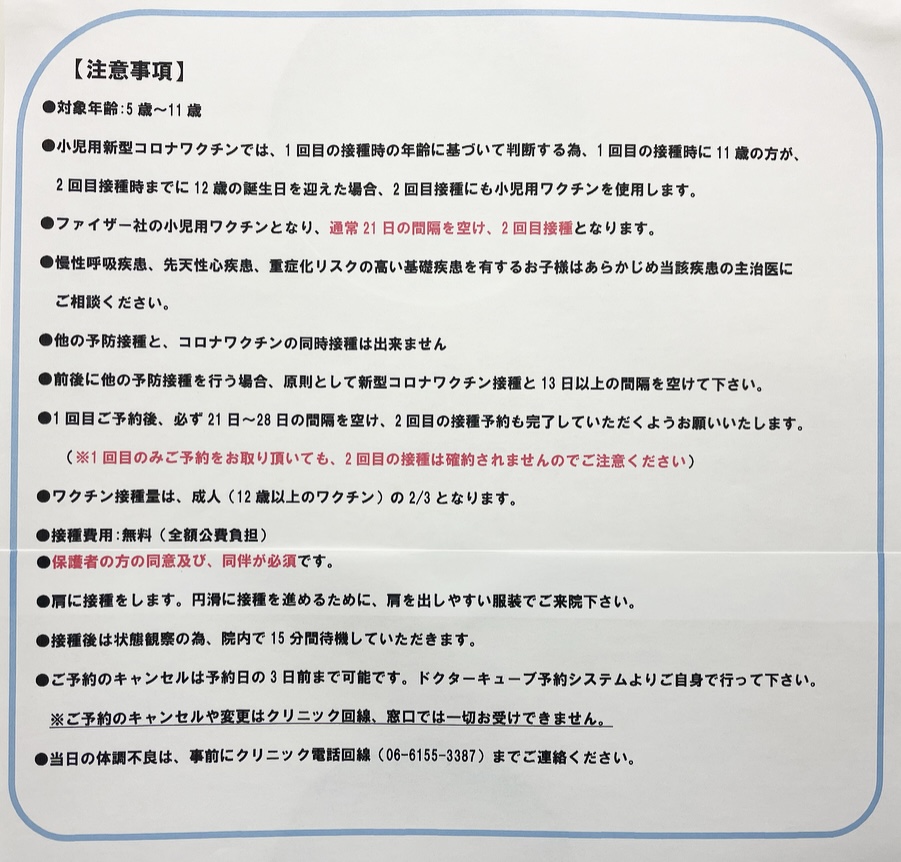 【注意事項】
●対象年齢:5歳～11歳
●小児用新型コロナワクチンでは、1回目の接種時の年齢に基づいて判断する為、1回目の接種時に11歳の方が、
2回目接種時までに12歳の誕生日を迎えた場合、2回目接種にも小児用ワクチンを使用します。
●ファイザー社の小児用ワクチンとなり、通常21日の間隔を空け、2回目接種となります。
●慢性呼吸疾患、先天性心疾患、重症化リスクの高い基礎疾患を有するお子様はあらかじめ当該疾患の主治医に
ご相談ください。
●他の予防接種と、コロナワクチンの同時接種は出来ません
●前後に他の予防接種を行う場合、原則として新型コロナワクチン接種と13日以上の間隔を空けて下さい。
●1回目ご予約後、必ず21日～28日の間隔を空け、2回目の接種予約も完了していただくようお願いいたします。
（※1回目のみご予約をお取り頂いても、2回目の接種は確約されませんのでご注意ください）
●ワクチン接種量は、成人（12歳以上のワクチン）の2/3となります。
●接種費用:無料（全額公費負担）
●保護者の方の同意及び、同伴が必須です。
●肩に接種をします。円滑に接種を進めるために、肩を出しやすい服装でご来院下さい。
●接種後は状態観察の為、院内で15分間待機していただきます。
●ご予約のキャンセルは予約日の3日前まで可能です。ドクターキューブ予約システムよりご自身で行って下さい。
※ご予約のキャンセルや変更はクリニック回線、窓口では一切お受けできません。
●当日の体調不良は、事前にクリニック電話回線（06-6155-3387）までご連絡ください。